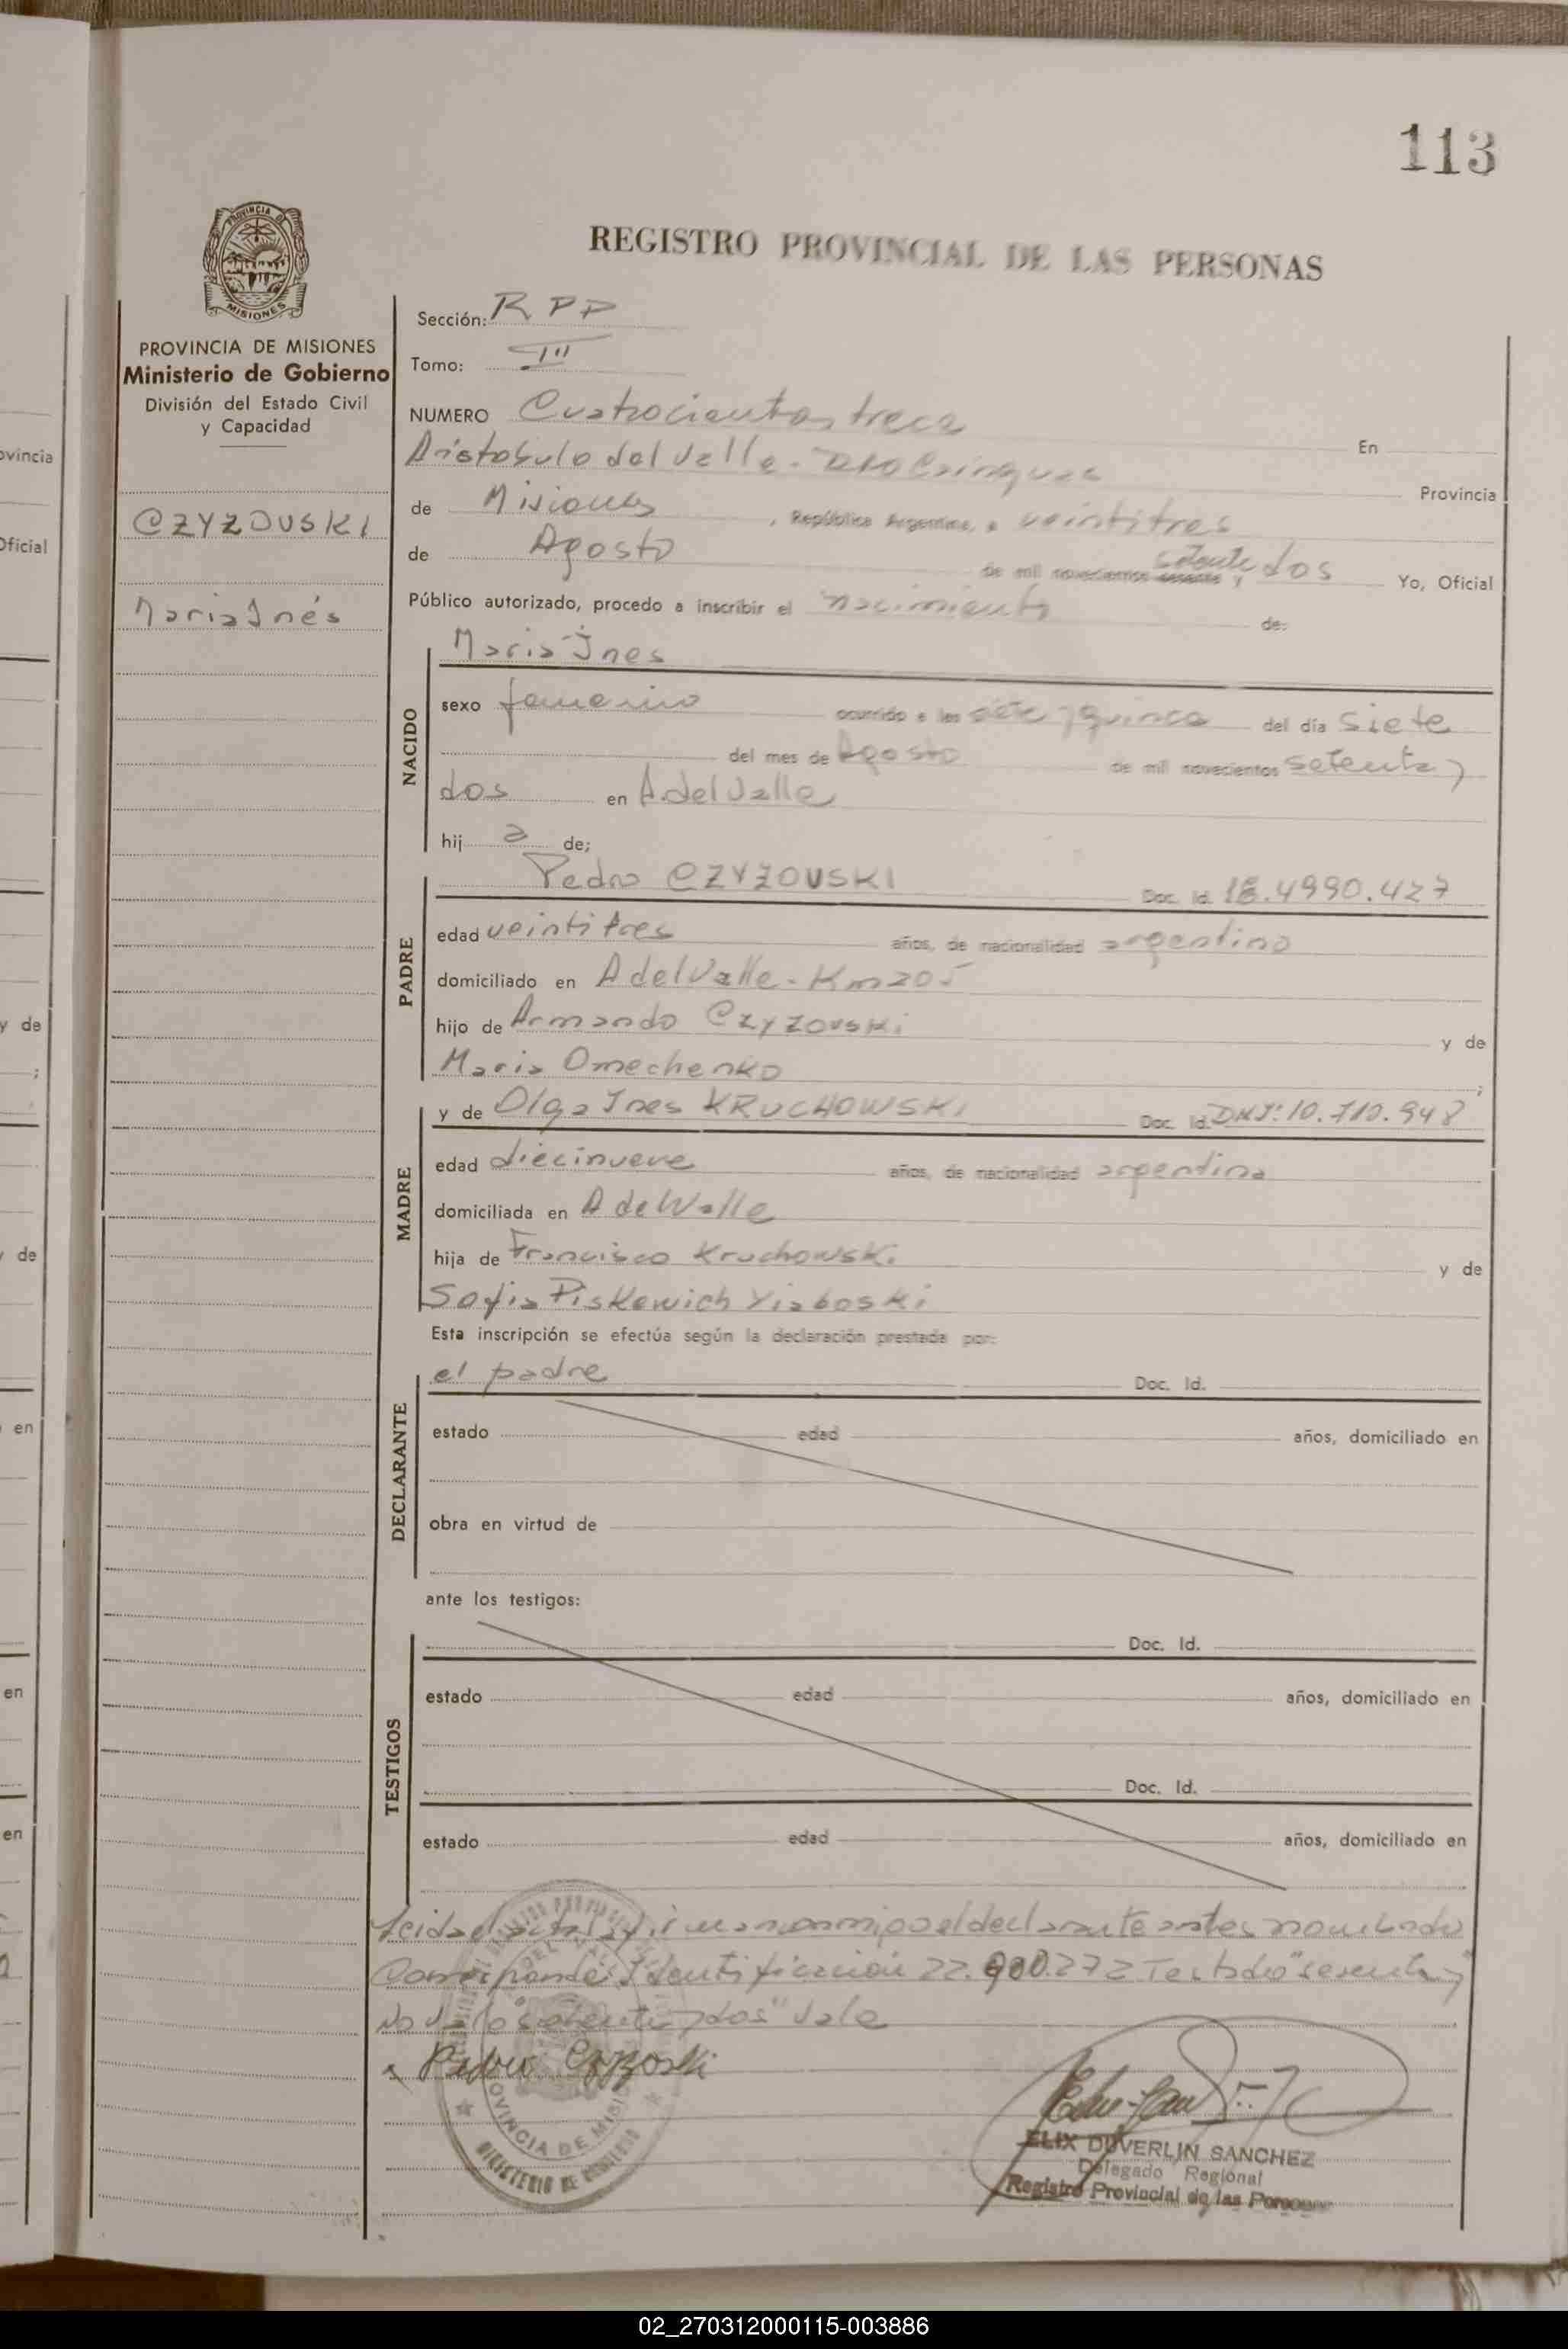 113
PROVINCIA DE
MISIONES
REGISTRO PROVINCIAL DE LAS PERSONAS
PROVINCIA DE MISIONES
Ministerio de Gobierno
División del Estado Civil
y Capacidad
CZYZOUSKI
Maria Inés
Sección: RPP
Tomo: III
NUMERO Cuatrocientos trece En
Aristobulo del Valle - Provincia
de Misiones, República Argentina, a veintitres
de Agosto de mil novecientos sesenta y setenta dos Yo, Oficial
Público autorizado, procedo a inscribir el nacimiento de:
NACIDO
Maria Ines
sexo femenino ocurrido a las siete y quince del día siete
del mes de Agosto de mil novecientos setenta y
dos en A del Valle
hij a de;
PADRE
Pedro CZYZOUSKI Doc. Id. 18.4990.427
edad veintitres años, de nacionalidad argentino
domiciliado en A del Valle - Km 205
hijo de Armando Czyzouski y de
Maria Omechenko ;
MADRE
y de Olga Ines KRUCHOWSKI Doc. Id. DNI: 10.710.948
edad diecinueve años, de nacionalidad argentina
domiciliada en A del Valle
hija de Francisco Kruchowski y de
Sofia Piskewich Yiaboski
Esta inscripción se efectúa según la declaración prestada por:
DECLARANTE
el padre Doc. Id.
estado edad años, domiciliado en
obra en virtud de
ante los testigos:
TESTIGOS
Doc. Id.
estado edad años, domiciliado en
Doc. Id.
estado edad años, domiciliado en
Leida el acta, firman conmigo el declarante antes nombrado
Corresponde Identificación 22.900.272 Testado "sesenta y"
No vale "setenta y dos" Vale
Pedro Czyzoski
PROVINCIA DE MISIONES
MINISTERIO DE GOBIERNO
ELIX DUVERLIN SANCHEZ
Delegado Regional
Registro Provincial de las Personas
ovincia
Oficial
y de
;
y de
en
en
en
02_270312000115-003886